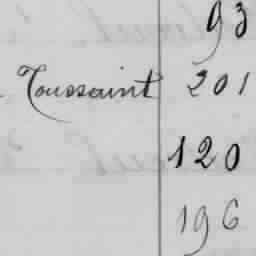 93
Toussaint 201
120
196